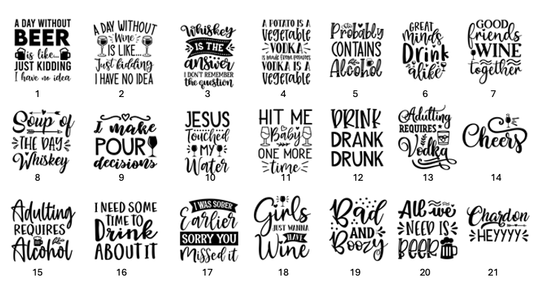 A DAY WITHOUT
BEER
is like...
JUST KIDDING
I have no idea
1
A DAY WITHOUT
Wine
IS LIKE...
Just kidding
I HAVE NO IDEA
2
Whiskey
IS THE
answer
I DON'T REMEMBER
the question
3
A POTATO IS A
vegetable
VODKA
is made from potatoes
VODKA IS A
vegetable
4
Probably
CONTAINS
Alcohol
5
GREAT
minds
Drink
alike
6
GOOD
friends
WINE
together
7
Soup of
THE DAY
Whiskey
8
I make
POUR
decisions
9
JESUS
Touched
MY
Water
10
HIT ME
Baby
ONE MORE
time
11
DRINK
DRANK
DRUNK
12
Adulting
REQUIRES
Vodka
13
Cheers
14
Adulting
REQUIRES
Alcohol
15
I NEED SOME
TIME TO
Drink
ABOUT IT
16
I WAS SOBER
Earlier
SORRY YOU
Missed it
17
Girls
JUST WANNA
HAVE
Wine
18
Bad
AND
Boozy
19
All we
NEED IS
BEER
20
Chardon
HEYYYY
21